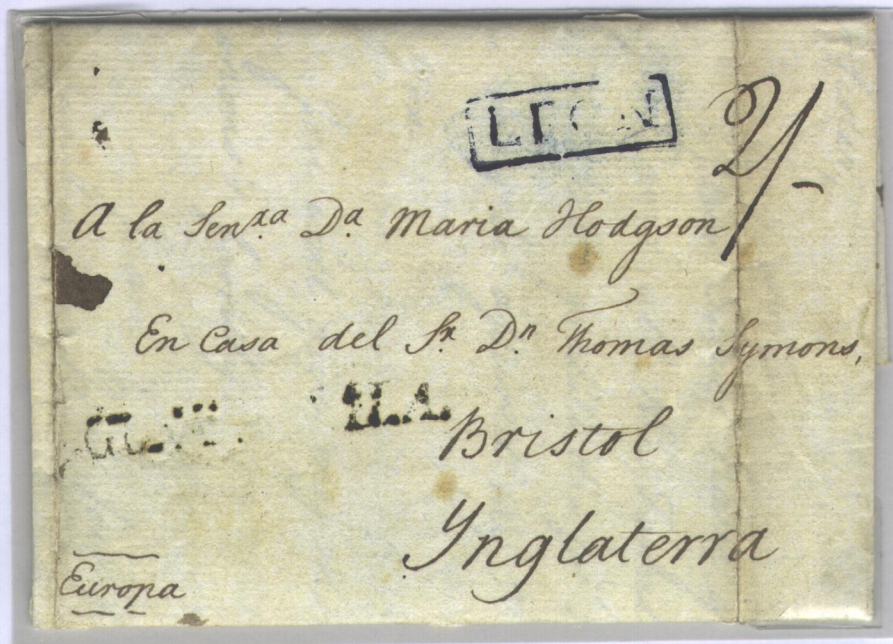 LEON
2/-
A la Senxxa Da. Maria Hodgson
En Casa del Sr. Dn. Thomas Symons,
Bristol
Ynglaterra
Europa